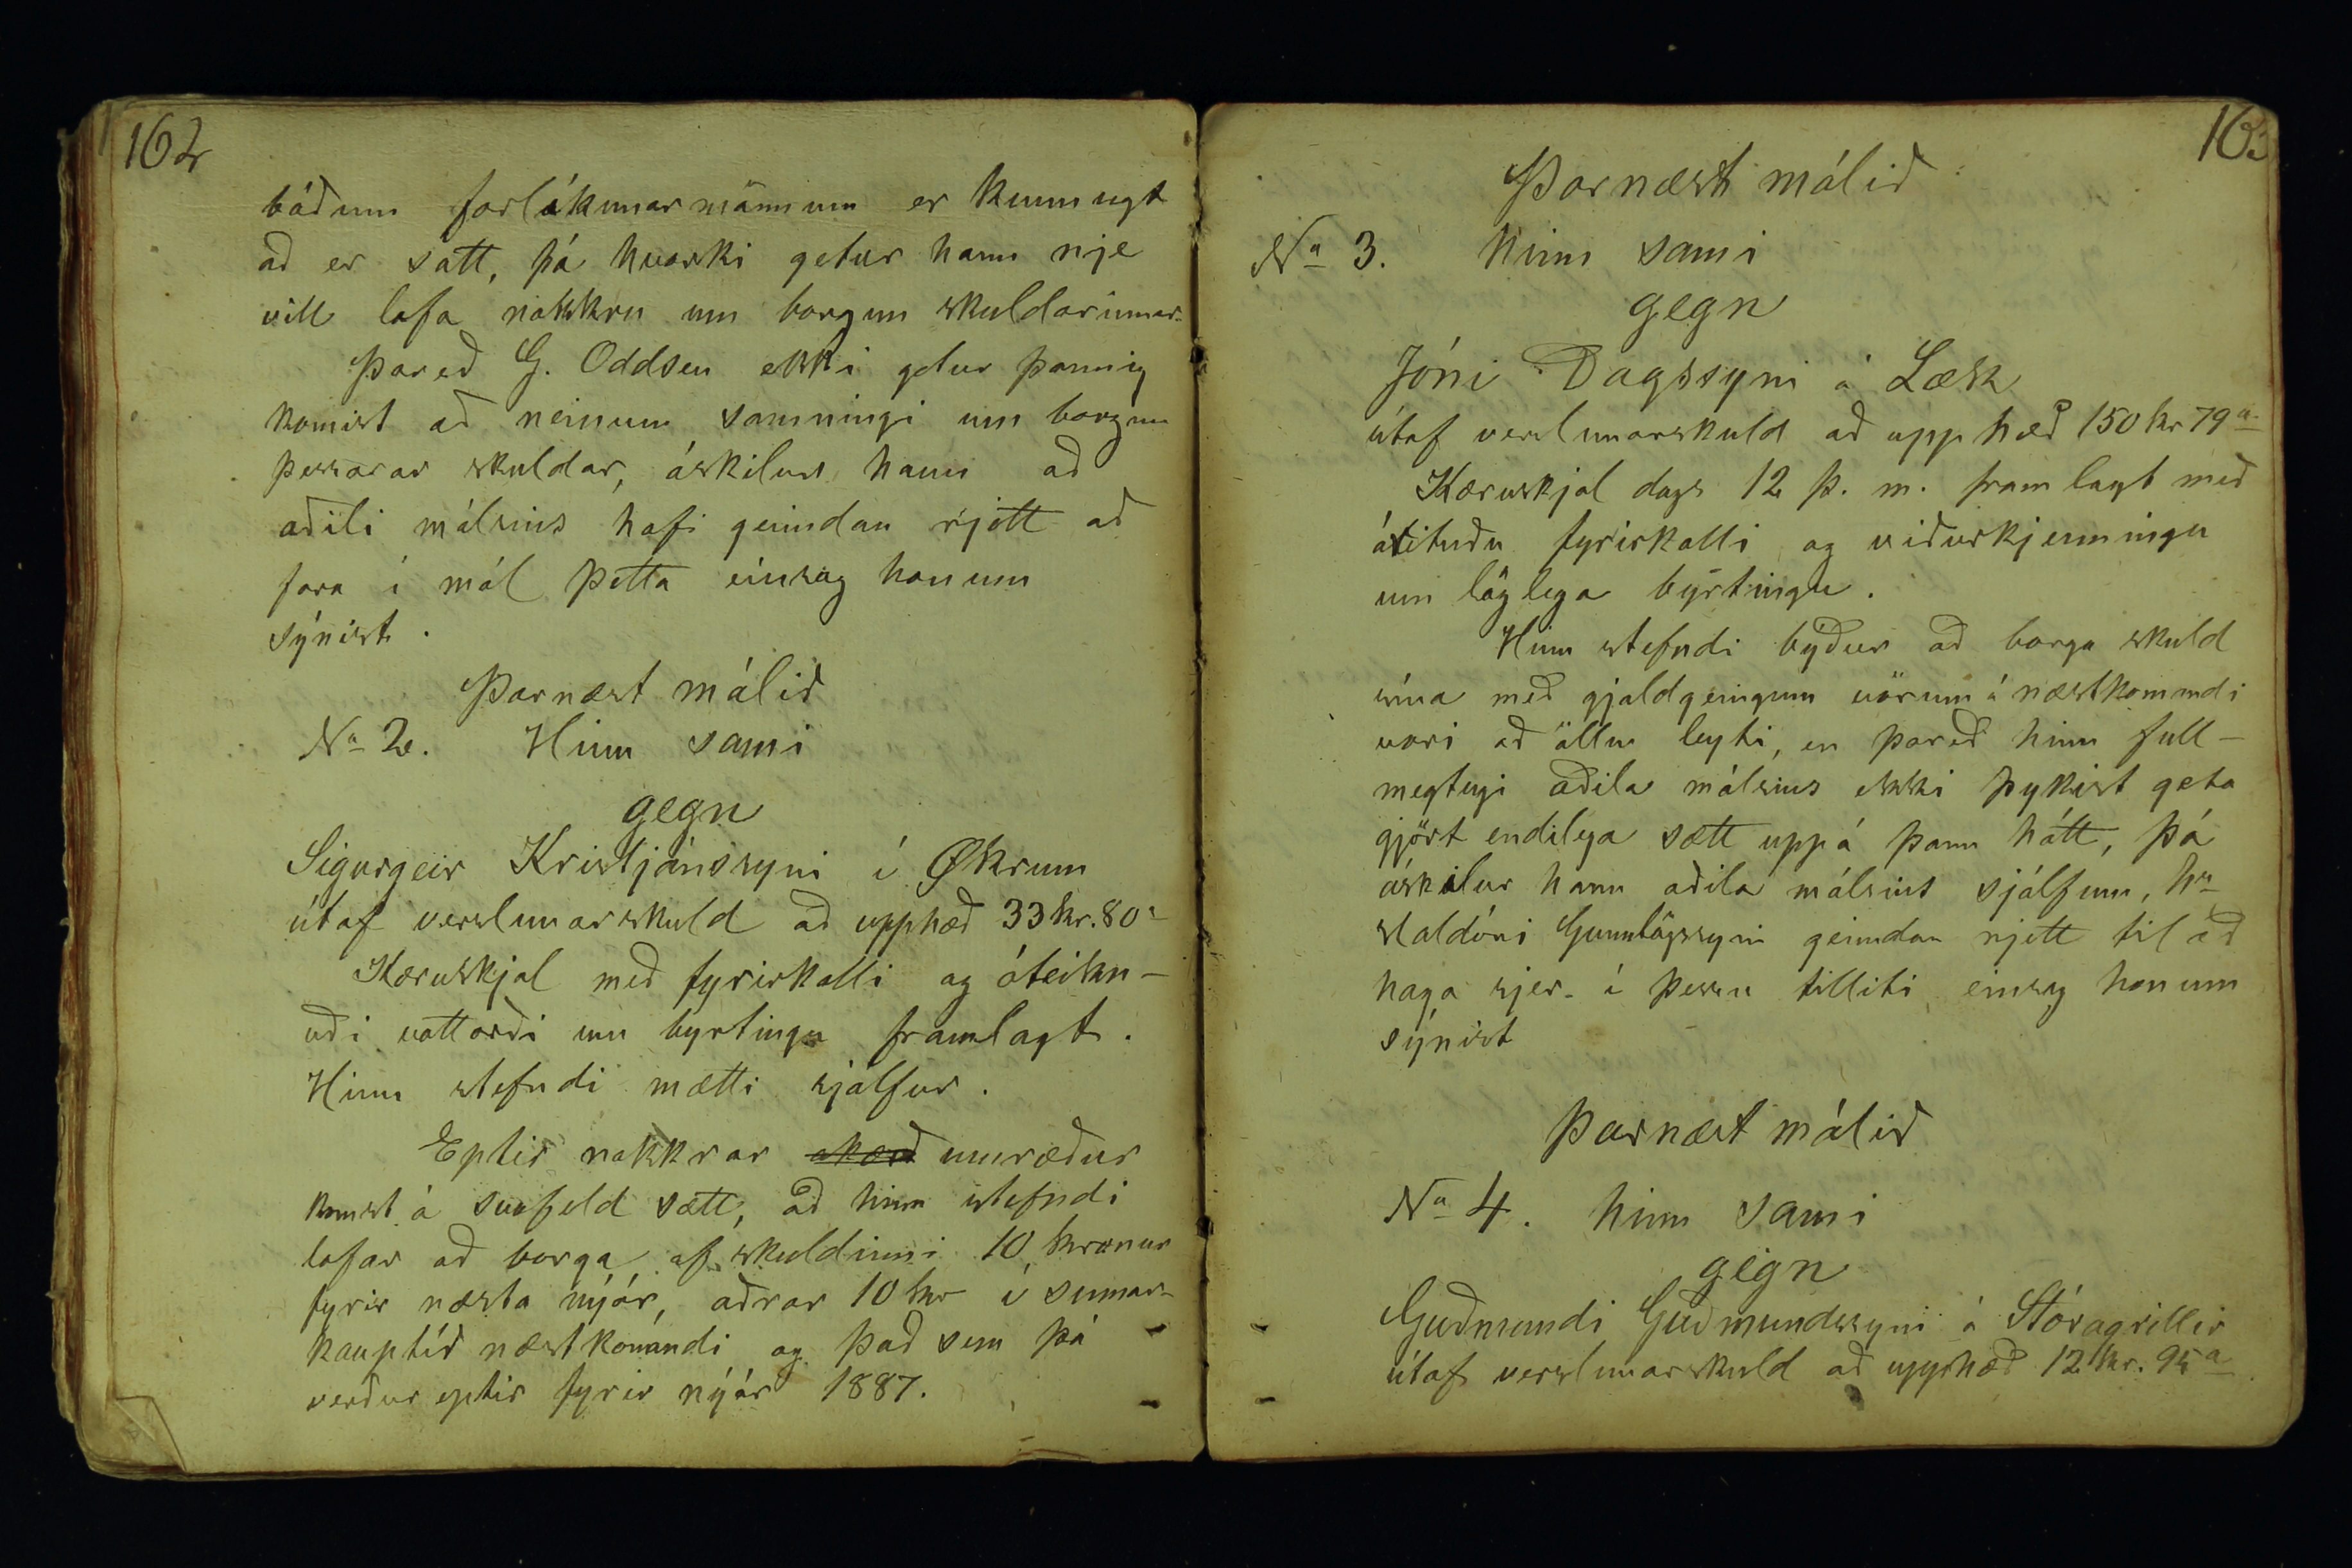 162
báðum forlíkunarmönnum er kunnugt
að er satt, þá hvorki getur hann nje
vill lofa nokkru um borgun skuldarinnar.
Þareð G. Oddsen ekki getur þannig
komist að neinum samningi um borgun
þessarar skuldar, áskilur hann að
aðili málsins hafi geimdan rjett að
fara í mál þetta einsog honum
sýnist.
Þarnæst málið
No 2. Hinn sami
gegn
Sigurgeir Kristjánssyni í Økrum
útaf verslunarskuld að upphæð 33 kr. 80 a
Kæruskjal með fyrirkalli og áteikn-
uði vottorði um byrtingu framlagt.
Hinn stefndi mætti sjálfur.
Eptir nokkrar umræður
komst á svofeld sætt, að hinn stefndi
lofar að borga af skuldinni 10 krónur
fyrir næsta nýár, aðrar 10 kr í sumar-
kauptíð næstkomandi og það sem þá
verður eptir fyrir nýár 1887.
163
Þarnæst málið
No 3. hinn sami
gegn
Jóni Dagssyni á Læk
útaf verslunarskuld að upphæð 150 kr 79 a
Kæruskjal dags 12 þ. m. framlagt með
árituðu fyrirkalli og viðurkjenningu
um löglega byrtingu.
Hinn stefndi býður að borga skuld
sína með gjaldgengum vörum á næstkomandi
vori að öllu leyti, en þareð hinn full-
megtugi aðila málsins ekki þykist geta
gjört endilega sætt uppá þann hátt, þá
áskilur hann aðila málsins sjálfum, hr
Valdóni Gunnlögssyni geimdan rjett til að
haga sjer í þessu tilliti einsog honum
sýnist
Þarnæst málið
No 4. hinn sami
gegn
Guðmundi Guðmundssyni á Stóragrillir
útaf verslunarskuld að upphæð 12 kr. 95 a